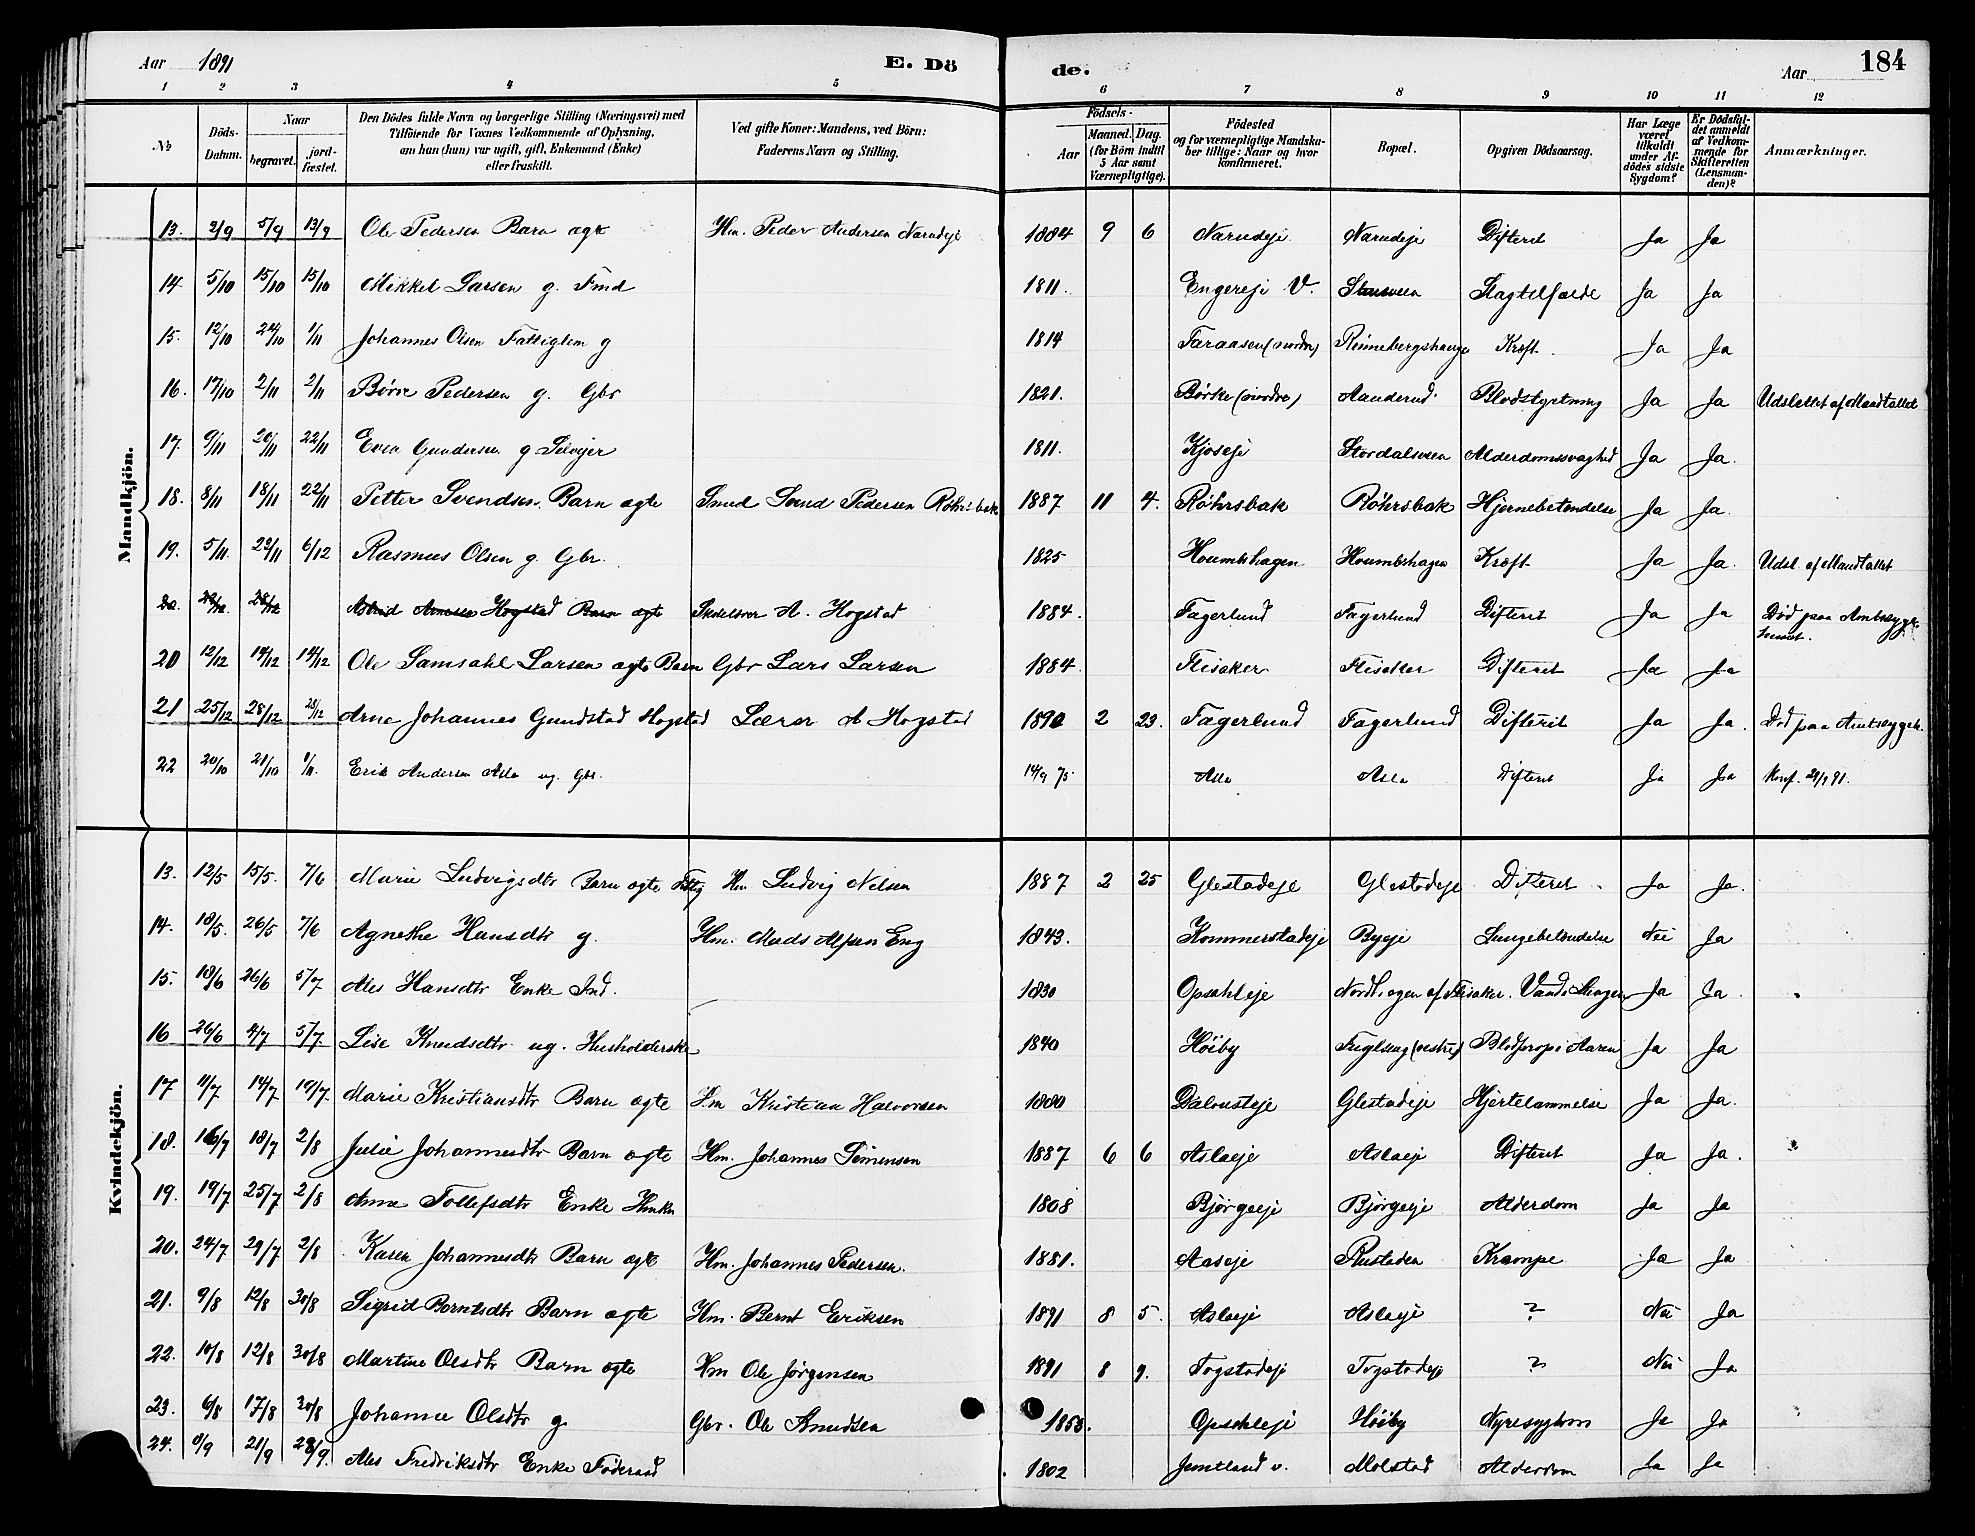 Aar 1891 E. Dö de. Aar 184
1 2 3 4 5 6 7 8 9 10 11 12
№ Döds-Datum. Naar begravet. jord-fæstet. Den Dödes fulde Navn og borgerlige Stilling (Næringsvei) med Tilföiende for Voxnes Vedkommende af Oplysning, om han (hun) var ugift, gift, Enkemand (Enke) eller fraskilt. Ved gifte Koner: Mandens, ved Börn: Faderens Navn og Stilling. Födsels- Aar Maaned. Dag. (for Börn indtil 5 Aar samt Værnepligtige). Födested og for værnepligtige Mandskaber tillige: Naar og hvor konfirmeret. Bopæl. Opgiven Dödsaarsag. Har Læge været tilkaldt under Afdödes sidste Sygdom? Er Dödsfaldet anmeldt af Vedkommende for Skifteretten (Lensmanden)? Anmærkninger.
Mandkjön.
13. 2/9 5/9 13/9 Ole Pedersen Barn ægte Hm. Peder Andersen Narudeje 1884 9 6 Narudeje Narudeje Difterit Ja Ja
14. 5/10 15/10 15/10 Mikkel Larsen g. Fmd 1811. Engereje V. Slagtilfælde Ja Ja
15. 12/10 24/10 1/11 Johannes Olsen Fattiglem g 1814 Faraasen (nordre) Rønnebergshaugen Kræft. Ja Ja
16. 17/10 2/11 2/11 Børre Pedersen g. Gbr 1821. Børke (nordre) Aanderud Blodstyrtning Ja Ja Udslettet af Mandtallet
17. 9/11 20/11 22/11 Even Gundersen g Selvejer 1811. Kjoseje Stordalsveen Alderdomssvaghed Ja Ja.
18. 8/11 18/11 22/11 Petter Svendsen Barn ægte Smed Svend Pedersen Röhrsbak 1887 11 4. Röhrsbak Röhrsbak Hjernebetændelse Ja Ja.
19. 5/11. 23/11 6/12 Rasmus Olsen g. Gbr. 1825 Houmbshagen Houmbshagen Kræft Ja Ja. Udsl. af Mandtallet
Astrid Arnesen Hogstad Barn ægte A. Hogstad 1884. Fagerlund Fagerlund Difterit Ja Ja Død paa Amtssygehuset.
20 12/12 14/12 14/12 Ole Samsahl Larsen ægte Barn Gbr Lars Larsen 1884. Flisaker Flisaker Difterit Ja Ja
21 25/12 28/12 28/12 Arne Johannes Gundstad Hogstad Lærer A Hogstad 1890 2 23. Fagerlund Fagerlund Difterit Ja Ja. Død paa Amtssygeh.
22 20/10 21/10 1/11. Erik Andersen Asla ug. Gbs. 14/9 75. Asla Asla Difterit Ja Ja Konf. 91.
Kvindekjön.
13. 12/5 15/5. 7/6 Marie Ludvigsdtr Barn ægte Hm Ludvig Nelsen 1887 2 25 Glestadeje Glestadeje Difterit. Ja Ja.
14. 18/5. 26/5 7/6 Agnethe Hansdtr g. Hm. Mads Alfsen Eng 1843. Kommerstadeje Bygeje Lungebetændelse Nei Ja
15. 18/6 26/6 5/7 Ales Hansdtr Enke Ind. 1830 Opsahleje Nordhagen af Flisaker. Ja Ja.
16 26/6 4/7 5/7. Lise Knudsdtr ug. Husholderske 1840 Høiby Fuglseng (vestre) Blodprop i Aaren Ja Ja
17 11/7 14/7 19/7 Marie Kristiansdtr Barn ægte Hm Kristian Halvorsen 1880 Glestadeje Hjertelammelse Ja Ja.
18. 16/7 18/7 2/8 Julie Johannesdtr Barn ægte Hm. Johannes Simensen 1887 6 6 Aslaeje Aslaeje Difterit Ja Ja.
19. 19/7 25/7 2/8 Anne Tollefsdtr Enke 1808 Bjørgeeje Bjørgeeje Alderdom Ja Ja
20. 24/7 29/7 2/8 Karen Johannesdtr Barn ægte Hm. Johannes Pedersen. 1881. Aaseje Rustaden Krampe Ja Ja
21. 9/8 12/8 30/8 Sigrid Berntsdtr Barn ægte Hm. Bernt Eriksen 1891 8 5. Aslaeje Aslaeje ? Nei Ja
22. 10/8 12/8 30/8 Martine Olsdtr Barn ægte Hm Ole Jørgensen 1891 8 9. Togstadeje Togstadeje ? Nei Ja
23. 6/8 17/8 30/8 Johanne Olsdtr g. Gbr. Ole Knudsen Opsahleje Høiby Nyresygdom Ja Ja
24. 21/9 28/9. Ales Fredriksdtr Enke Føderaad 1802 Jemtland v. Molstad Alderdom Ja Ja